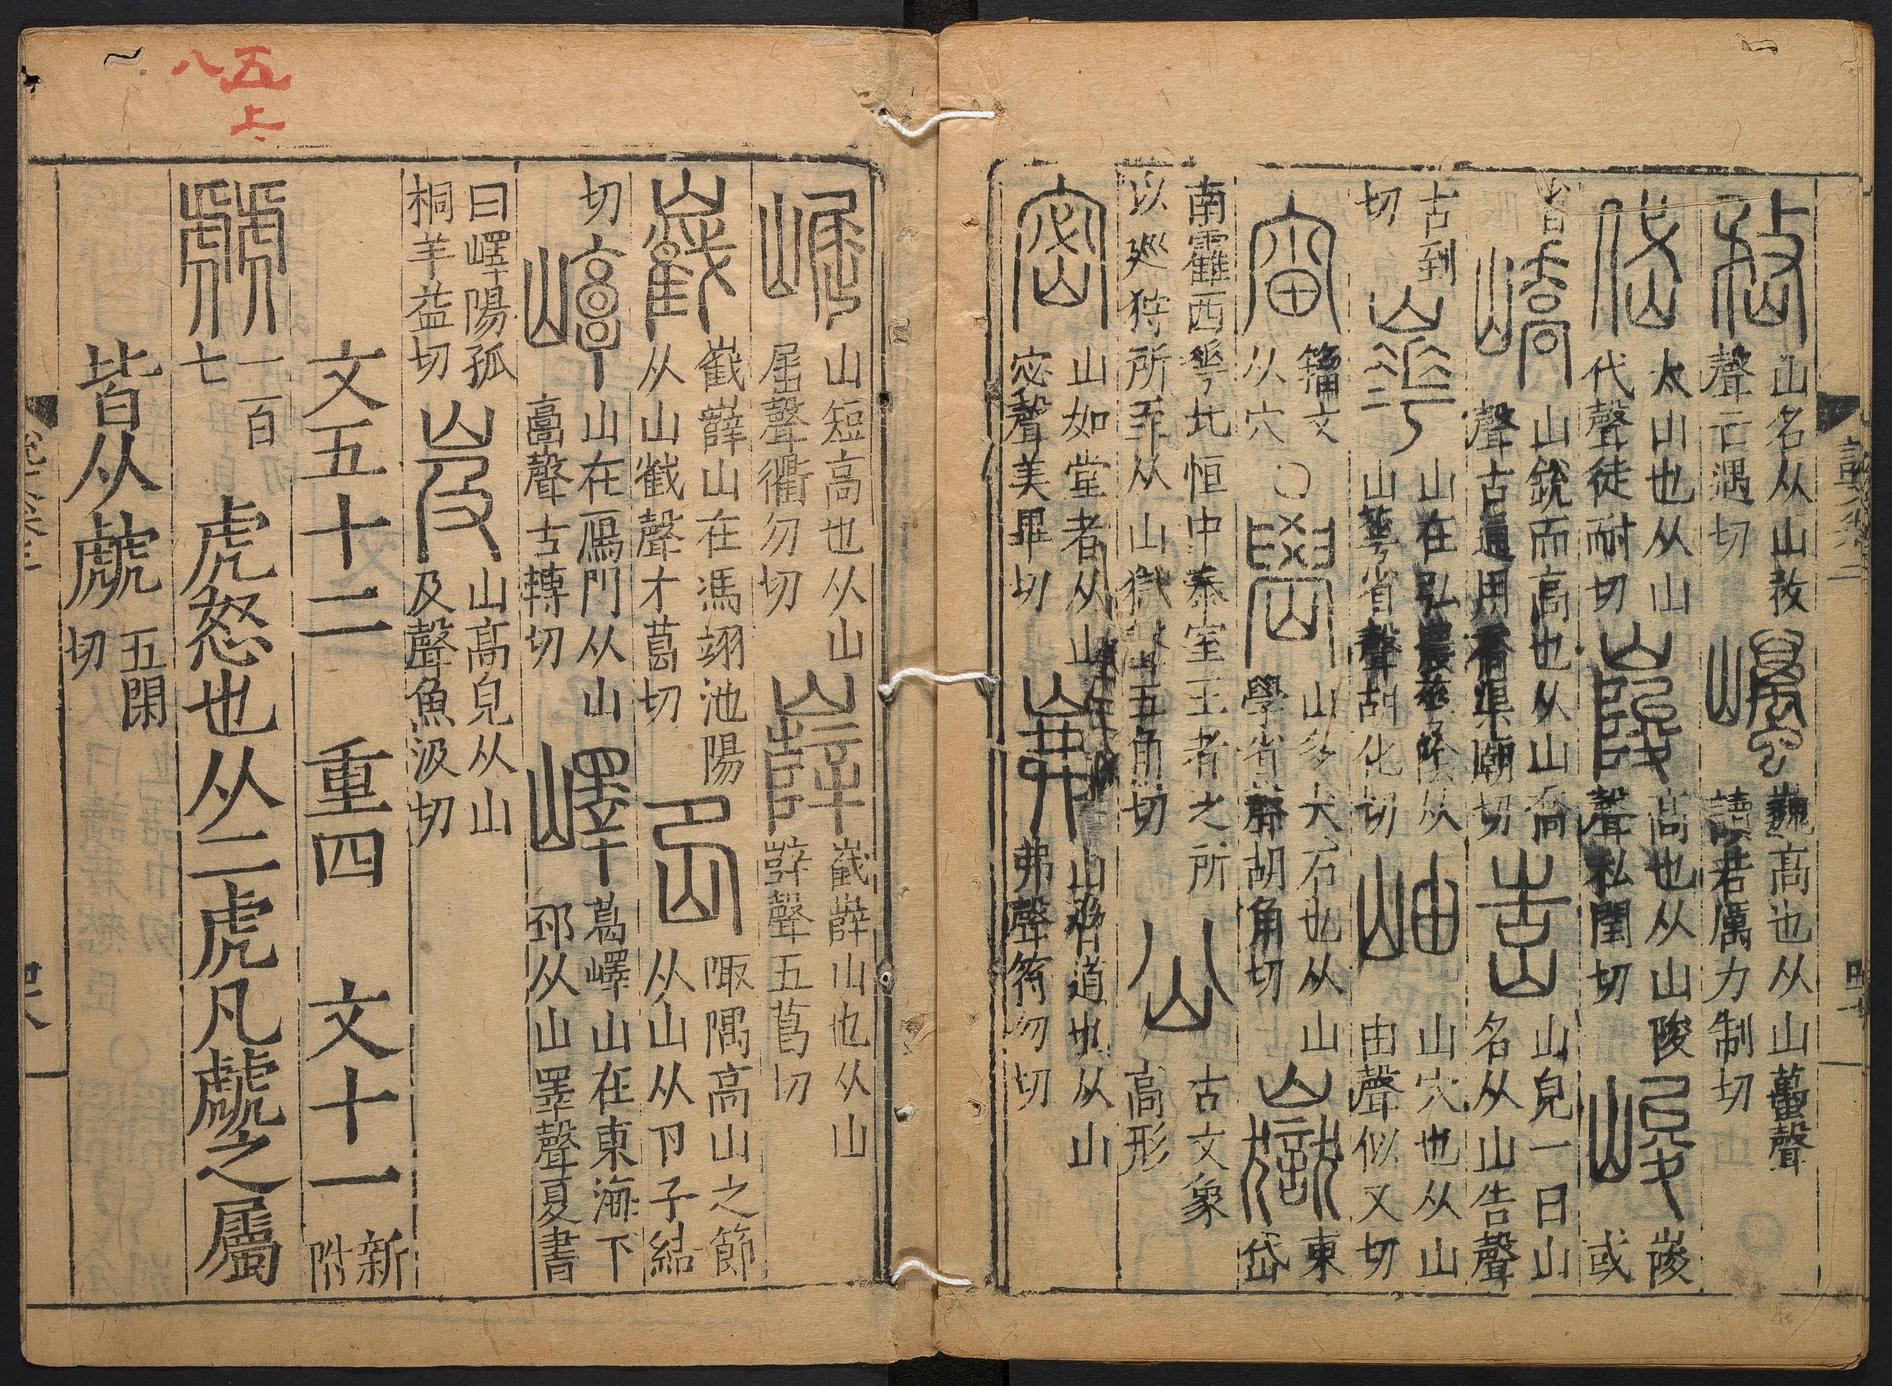 嵍山名从山敄聲亡遇切巁巍高也从山萬聲讀若厲力制切
岱太山也从山代聲徒耐切𡾰高也从山陵聲私閏切峻𡾰或
省嶠山銳而高也从山喬聲古通用喬渠廟切峼山皃一曰山名从山告聲
古到切崋山在弘農華陰从山華省聲胡化切岫山穴也从山由聲似又切
𥥉籀文从穴○嶨山多大石也从山學省聲胡角切嶽東岱
南靃西華北恒中泰室王者之所以巡狩所至从山獄聲五角切𡶳古文象高形
密山如堂者从山宓聲美畢切岪山脅道也从山弗聲符勿切
崛山短高也从山屈聲衢勿切嶭嶻嶭山也从山辥聲五葛切
嶻嶻嶭山在馮翊池陽从山㦸聲才葛切岊陬隅高山之節从山从卪子結
切𡼖山在鴈門从山𩫖聲古博切嶧葛嶧山在東海下邳从山睪聲夏書
曰嶧陽孤桐羊益切岌山高皃从山及聲魚汲切
文五十二 重四 文十一新附
虤一百七虎怒也从二虎凡虤之屬
皆从虤五閑切
四八
五上
八